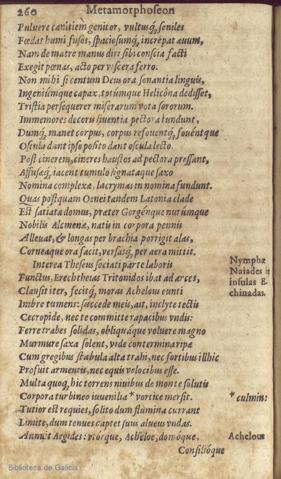 260 Metamorphoseon
Puluere canitiem genitor, vultusq́; seniles
Fœdat humi fusos, spaciosumq́; increpat auum,
Nam de matre manus diri sibi conscia facti
Exegit pœnas, acto per viscera ferro.
Non mihi si centum Deus ora sonantia linguis,
Ingeniumque capax, totumque Helicôna dedisset,
Tristia persequerer miserarum vota sororum.
Immemores decoris liuentia pectora tundunt,
Dumq́; manet corpus, corpus refouentq́; fouéntque
Oscula dant ipso posito dant oscula lecto.
Post cinerem, cineres haustos ad pectora pressant,
Affusaq́; iacent tumulo signataque saxo
Nomina complexæ, lacrymas in nomina fundunt.
Quas postquam Oeneitandem Latonia clade
Est satiata domus, præter Gorgénque nurúmque
Nobilis Alcmenæ, natis in corpora pennis
Alleuat, & longas per brachia porrigit alas,
Corneaque ora facit, versasq́; per aera mittit.
Interea Theseus sociati parte laboris
Functus, Erechtheias Tritonidos ibat ad arces,
Clausit iter, fecitq́; moras Achelous eunti
Imbre tumens: succede meis, ait, inclyte tectis
Cecropide, nec te committe rapacibus vndis:
Ferre trabes solidas, obliquáque voluere magno
Murmure saxa solent, vide conterminaripæ
Cum gregibus stabula alta trahi, nec fortibus illhic
Profuit armentis, nec equis velocibus esse.
Multa quoq́; hic torrens niuibus de monte solutis
Corpora turbineo iuuenilia * vortice mersit.
Tutior est requies, solito dum flumina currant
Limite, dum tenues capiet suus alueus vndas.
Annuit Aegides: vtórque, Acheloe, domóque,
Consilióque
Nymphæ
Naiades in
insulas E-
chinadas.
* culmin:
Achelous
Biblioteca de Galicia